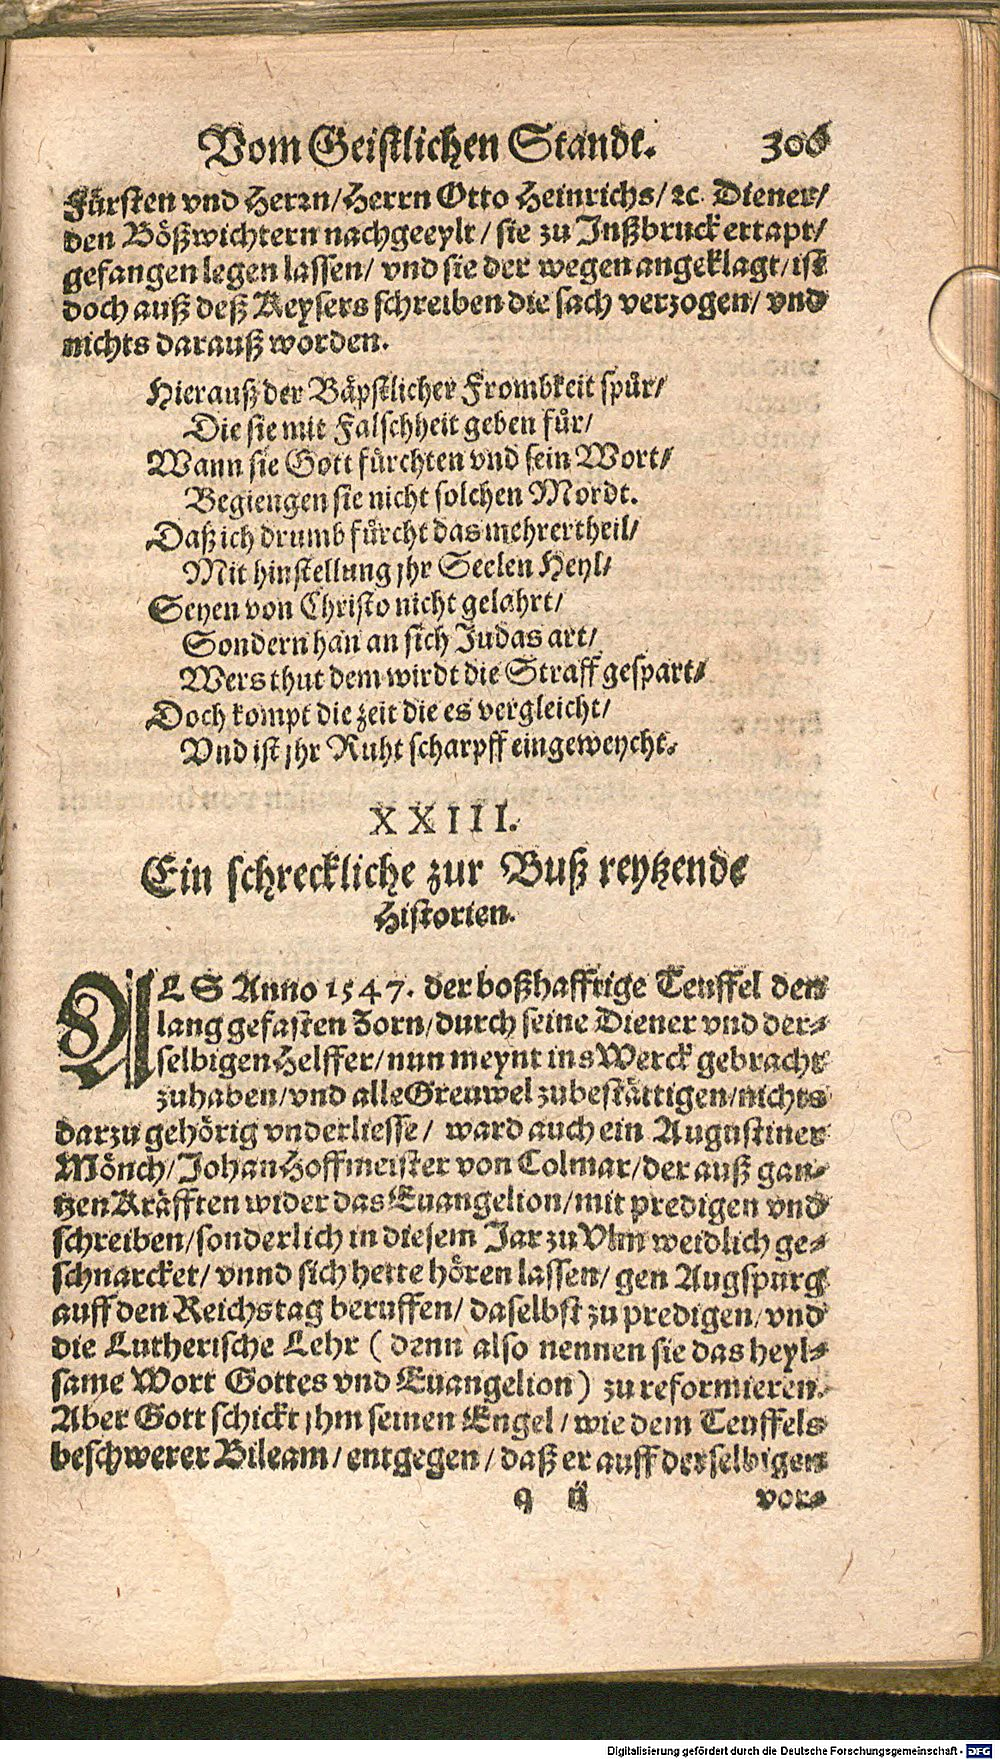 Vom Geistlichen Stande. 306
Fürsten vnd Herrn/Herrn Otto Heinrichs/ ꝛc. Diener/
den Bößwichtern nachgeeylt / sie zu Inßbruck ertapt/
gefangen legen lassen/ vnd sie der wegen angeklagt/ ist
doch auß deß Keysers schreiben die sach verzogen/ vnd
nichts darauß worden.
Hierauß der Bäpstlicher Frombkeit spür/
Die sie mit Falschheit geben für/
Wann sie Gott fürchten vnd sein Wort/
Begiengen sie nicht solchen Mordt.
Daß ich drumb fürcht das mehrertheil/
Mit hinstellung jhr Seelen Heyl/
Seyen von Christo nicht gelahrt/
Sondern han an sich Judas art/
Wers thut dem wirdt die Straff gespart/
Doch kompt die zeit die es vergleicht/
Vnd ist jhr Ruht scharpff eingeweycht.
XXIII.
Ein schreckliche zur Buß reytzende
Historien.
ALS Anno 1547. der boßhafftige Teuffel den
lang gefasten Zorn/durch seine Diener vnd der-
selbigen Helffer/nun meynt ins Werck gebracht
zuhaben/vnd alle Greuwel zubestättigen/nichts
darzu gehörig vnderliesse/ ward auch ein Augustiner
Mönch/Johan Hoffmeister von Colmar/der auß gan-
tzen Kräfften wider das Euangelion/mit predigen vnd
schreiben/sonderlich in diesem Jar zu Vlm weidlich ge-
schnarcket/ vnnd sich hette hören lassen/ gen Augspurg
auff den Reichstag beruffen/ daselbst zu predigen/vnd
die Lutherische Lehr ( denn also nennen sie das heyl-
same Wort Gottes vnd Euangelion) zu reformieren.
Aber Gott schickt jhm seinen Engel / wie dem Teuffels
beschwerer Bileam / entgegen / daß er auff derselbigen
q ij vor-
Digitalisierung gefördert durch die Deutsche Forschungsgemeinschaft - DFG